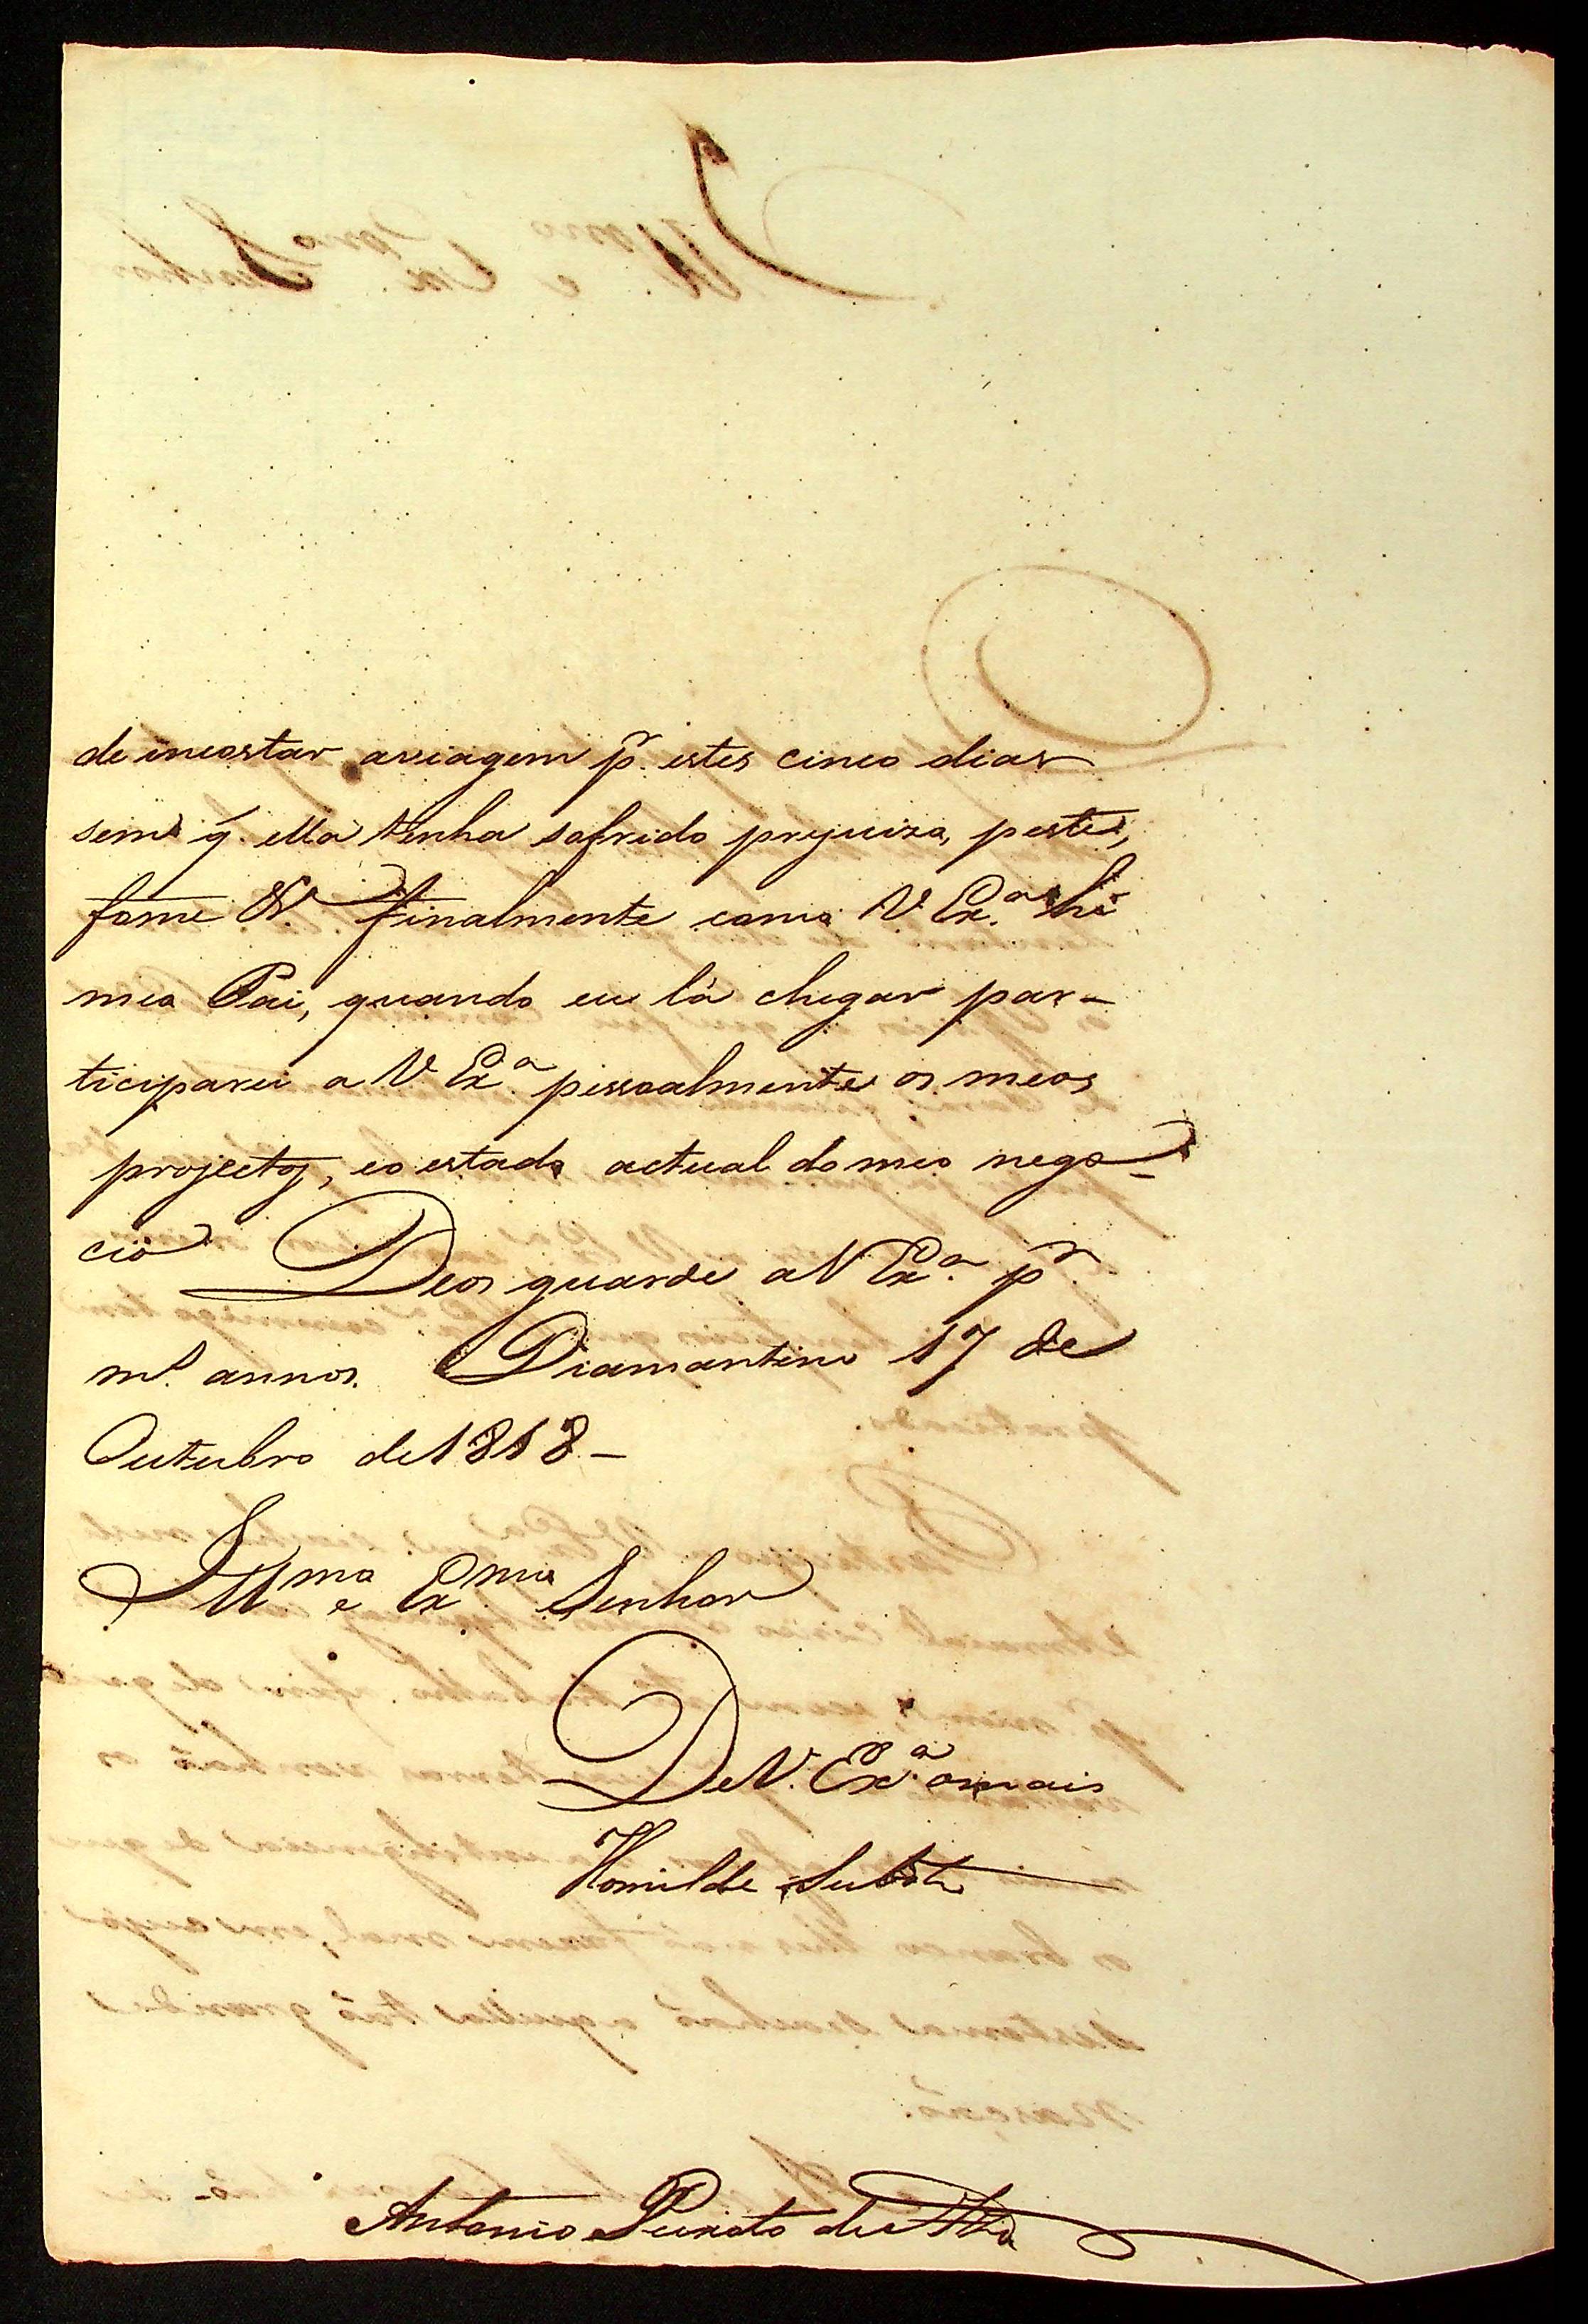 de incostar aviagem p.r estes cinco dias
sem q. ella tenha sofrido prejuizo, peste,
fome &c finalmente como V Ex.a hé
meo Pai, quando eu lá chegar par-
ticiparei a V Ex.a pessoalmente os meos
projectos, eo estado actual do meo nego-
cio Deos guarde aV Ex.a p.r
m.s annos. Diamantino 17 de
Outubro de 1818 -
Ill.mo e Ex.mo Senhor
DeV. Ex.a omais
Homilde Subdito
Antonio Peixoto de